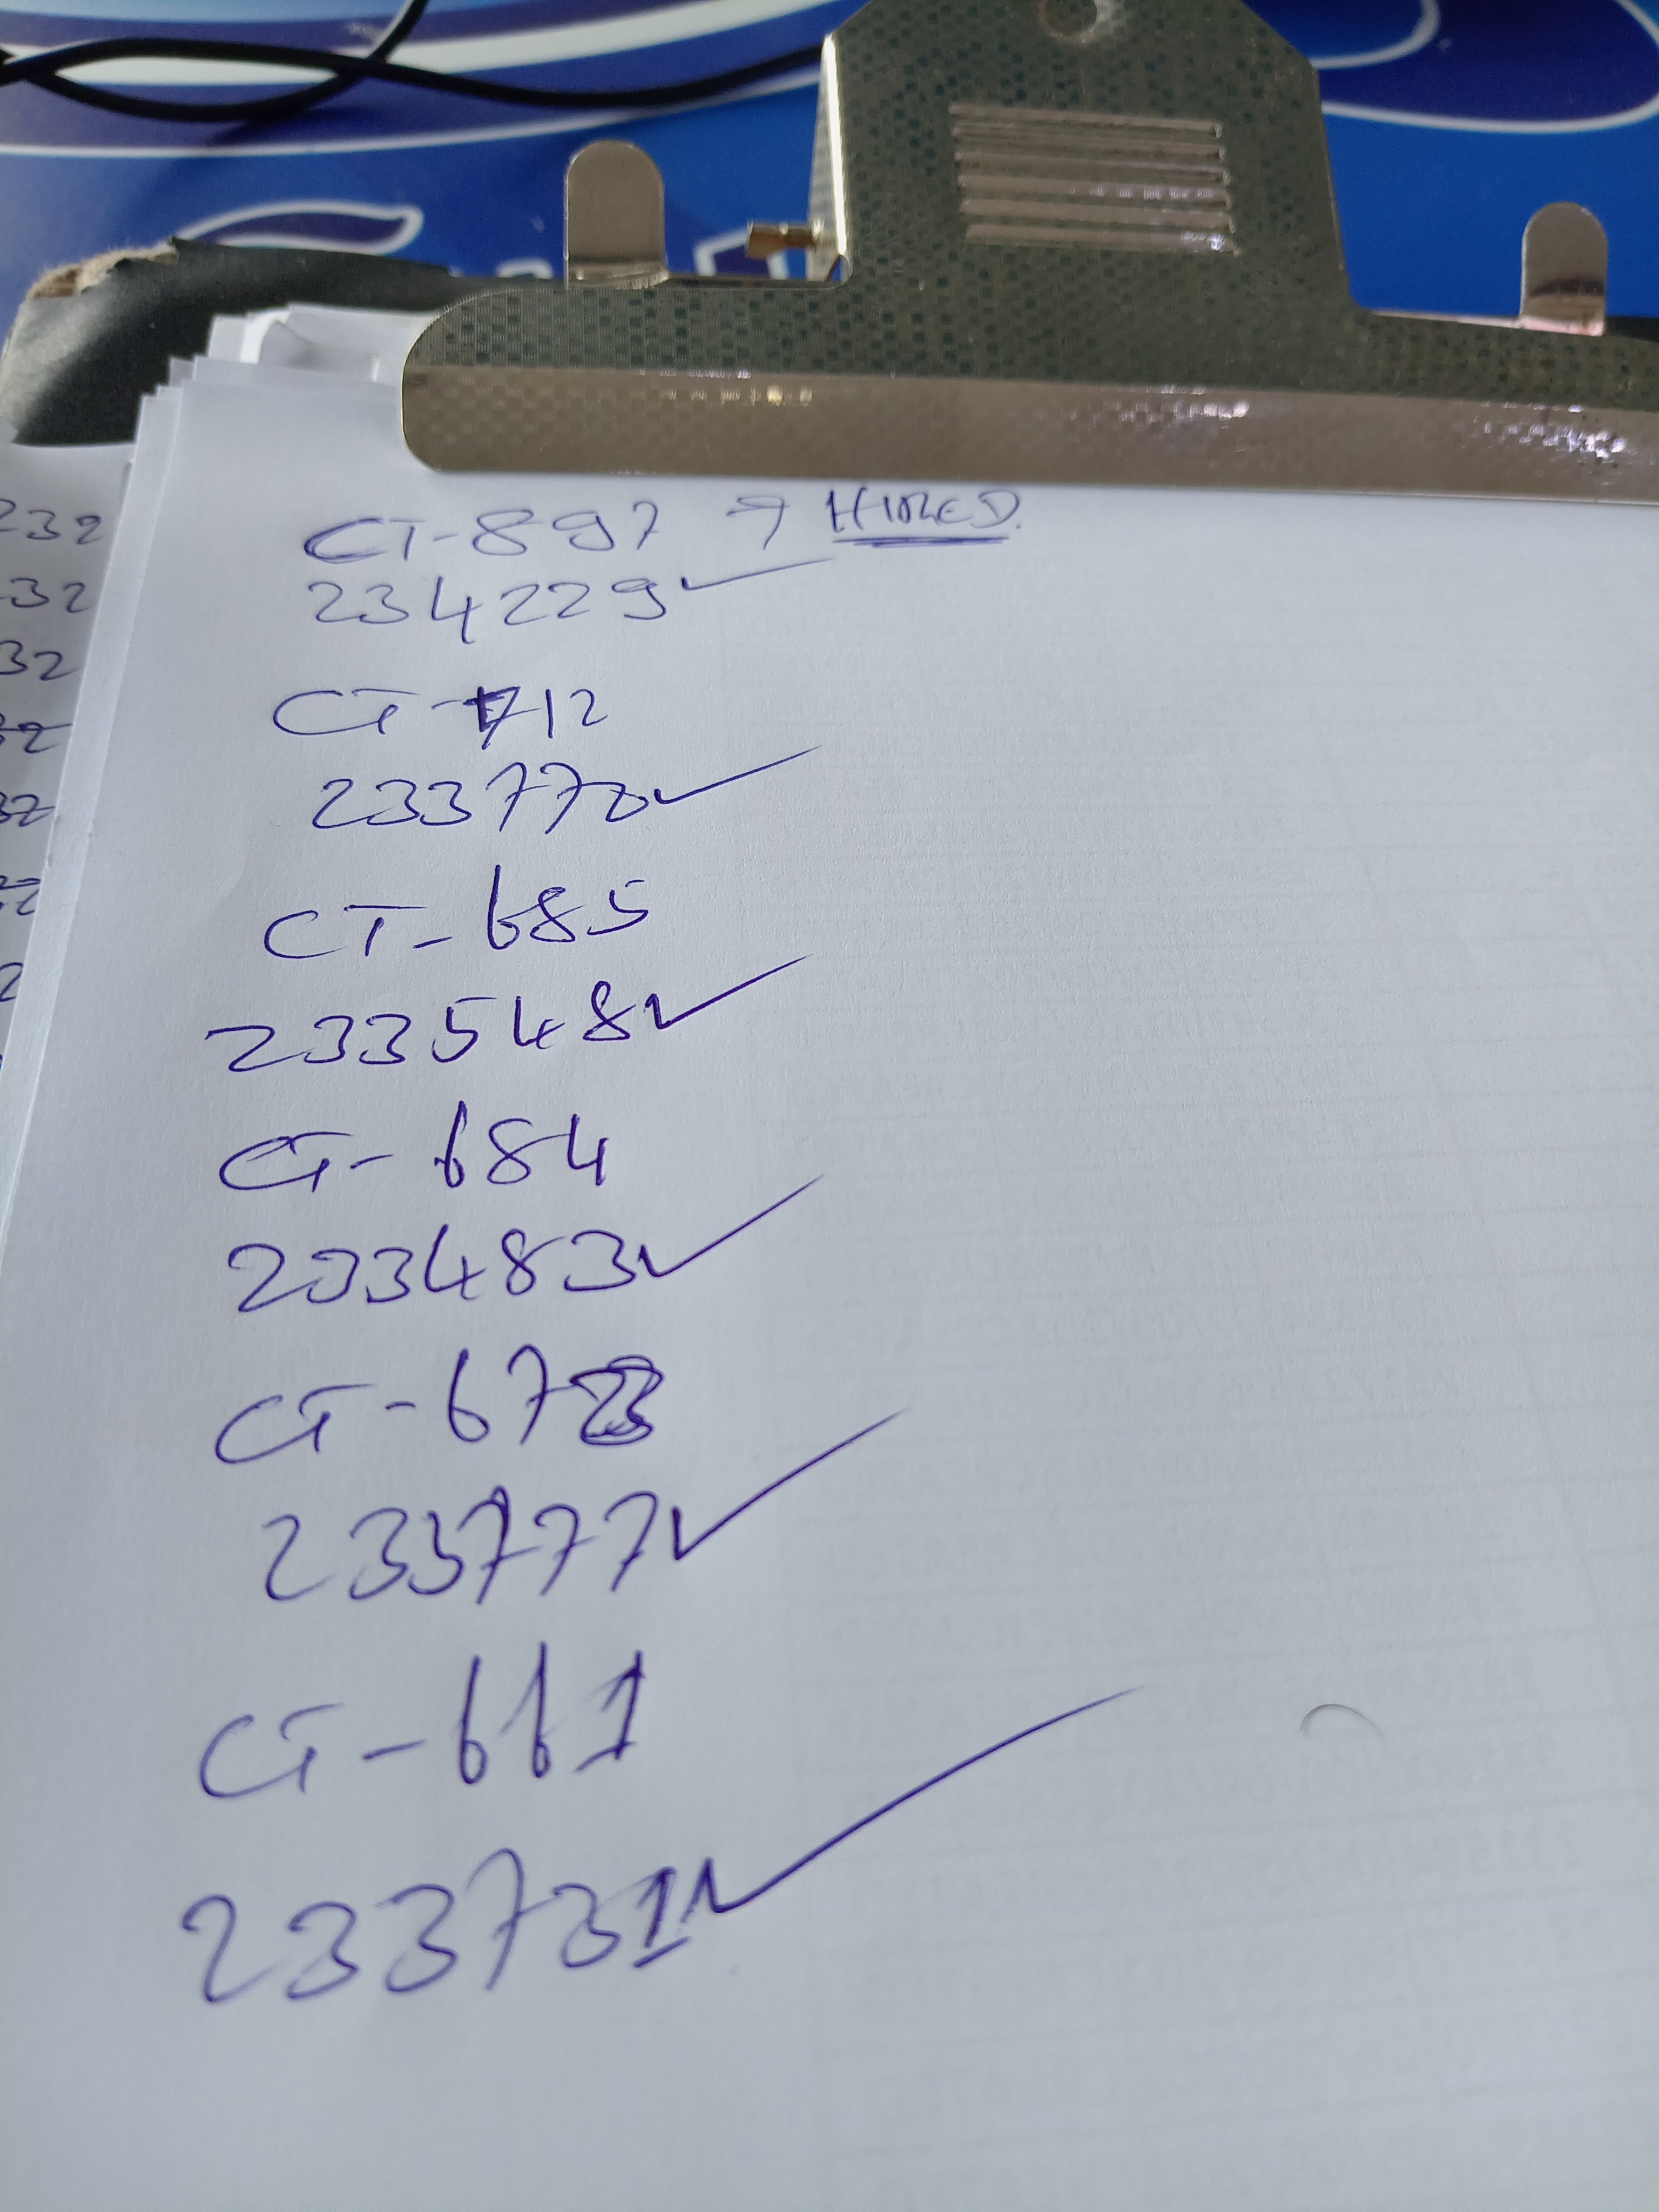 CT-897 → HIRED.
234229 ✓
CT-712
233770 ✓
CT-685
233548 ✓
CT-684
233483 ✓
CT-673
233777 ✓
CT-661
233731 ✓
232
32
32
32
32
32
2